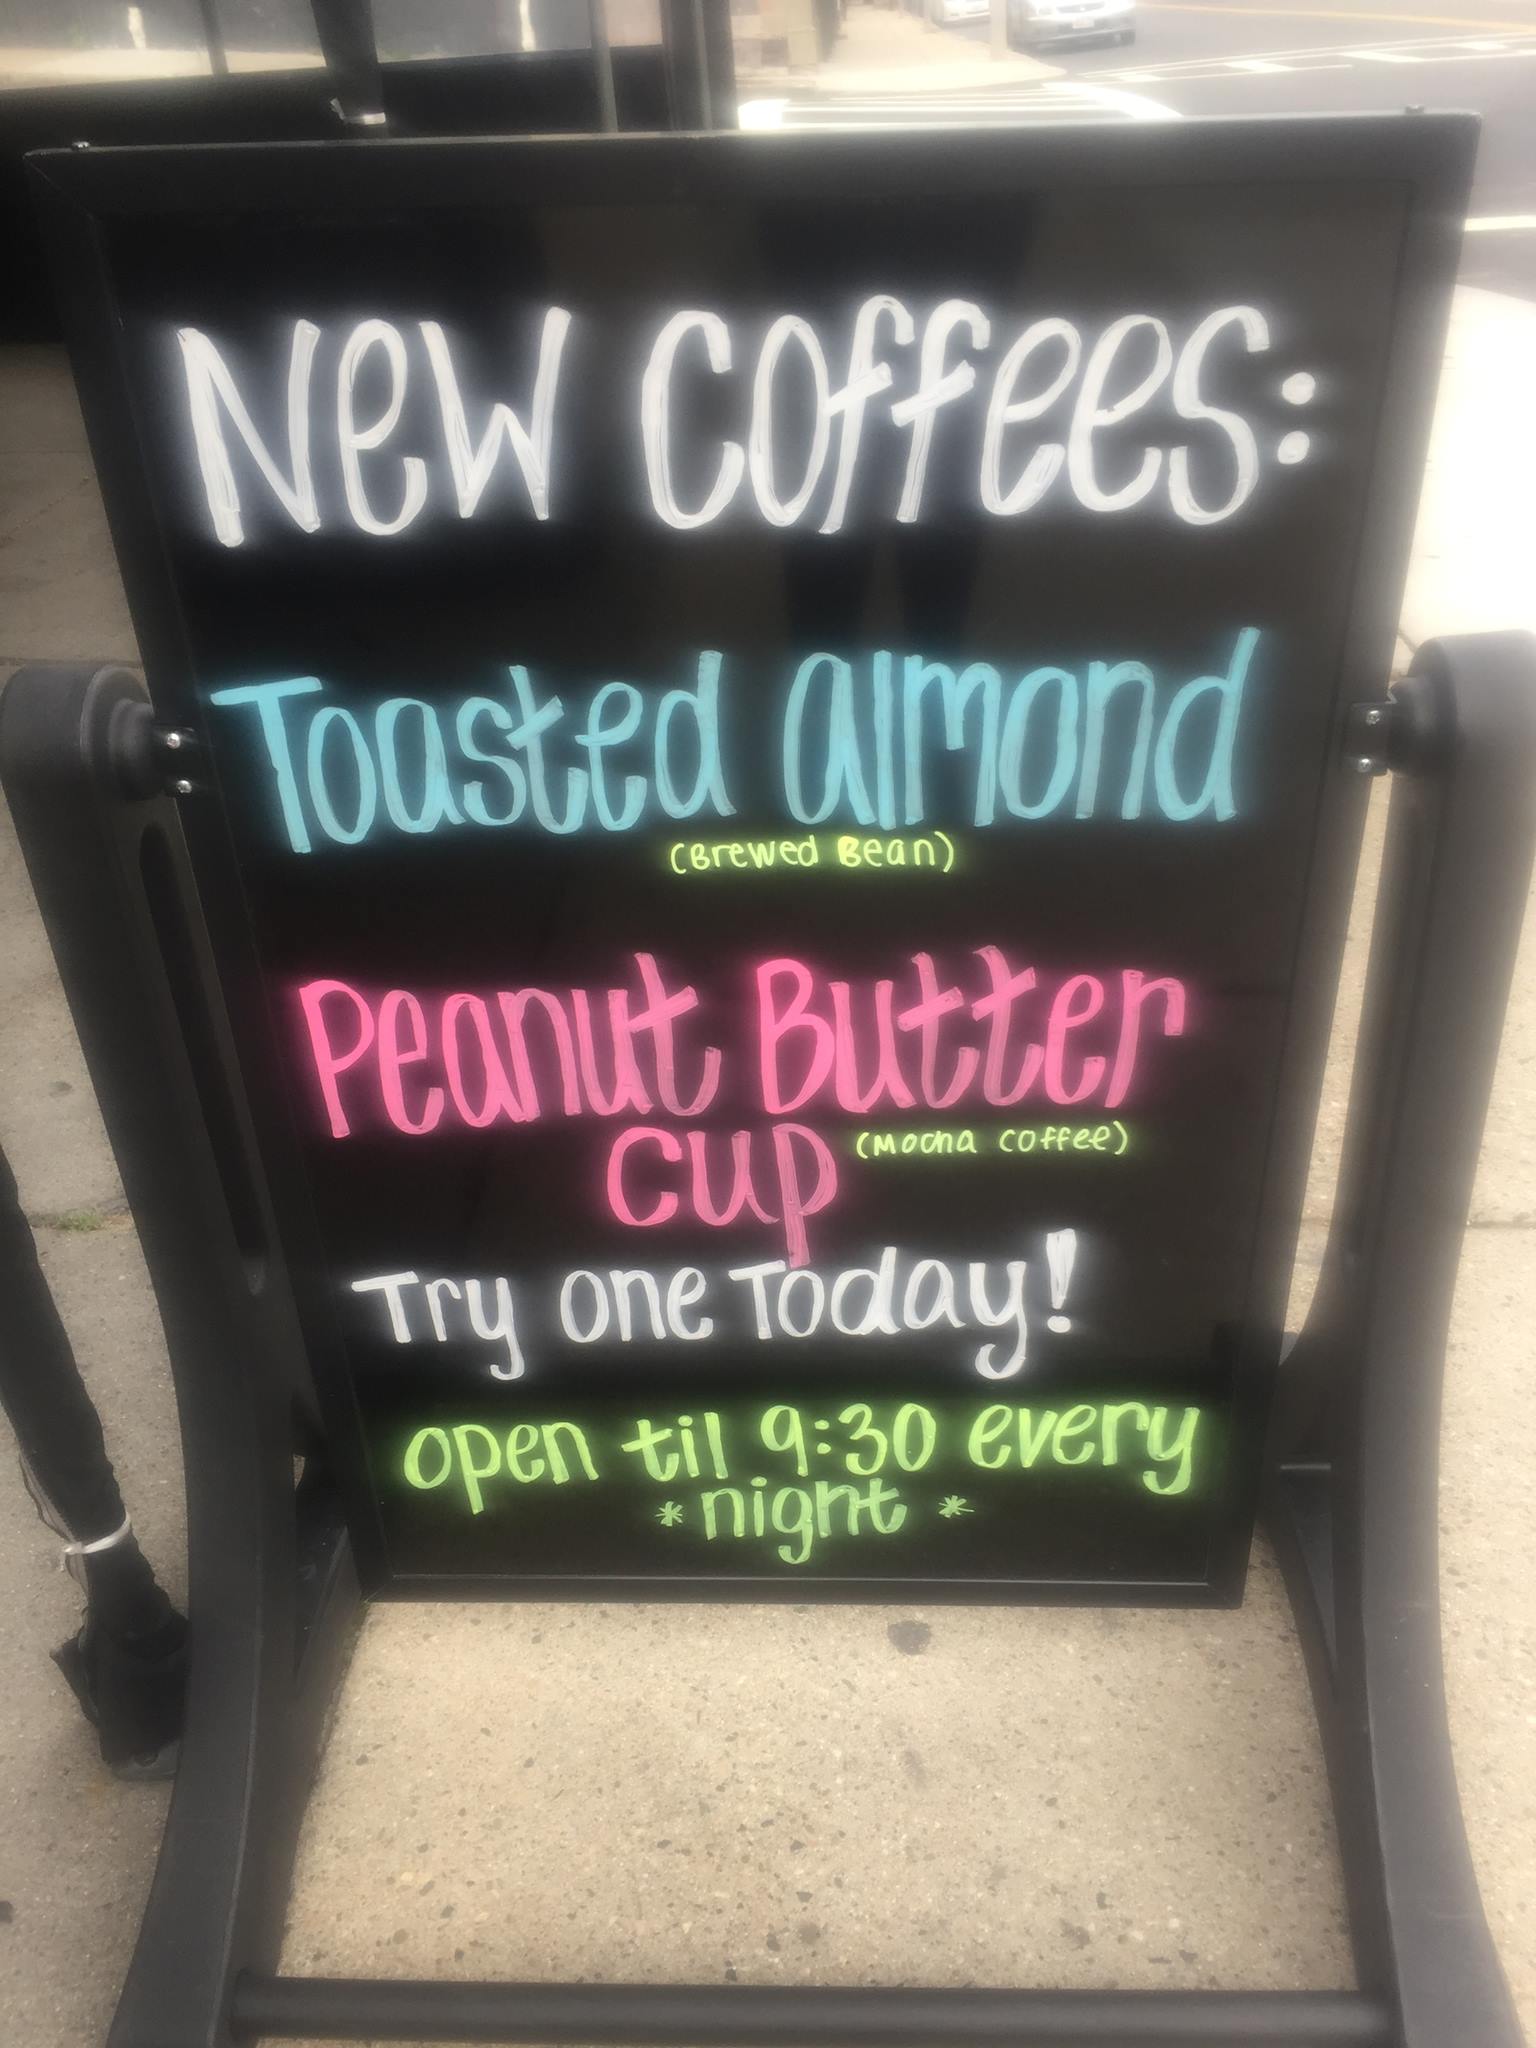 New Coffees:
Toasted almond
(Brewed Bean)
Peanut Butter
cup (Mocha coffee)
Try one Today!
open til 9:30 every
* night *